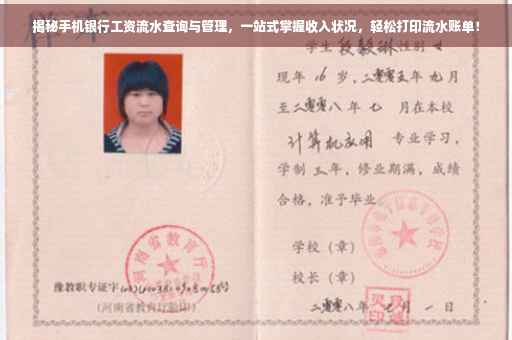 揭秘手机银行工资流水查询与管理，一站式掌握收入状况，轻松打印流水账单！
学生 段毅琳 性别 女
现年 16 岁，二零零五年 九月
至二零零八年 七 月在本校
计算机应用 专业学习，
学制 三年，修业期满，成绩
合格，准予毕业
学校（章）
校长（章）
二零零八年 七月 一日
河南省教育厅
豫教职专证字
（河南省教育厅验印）